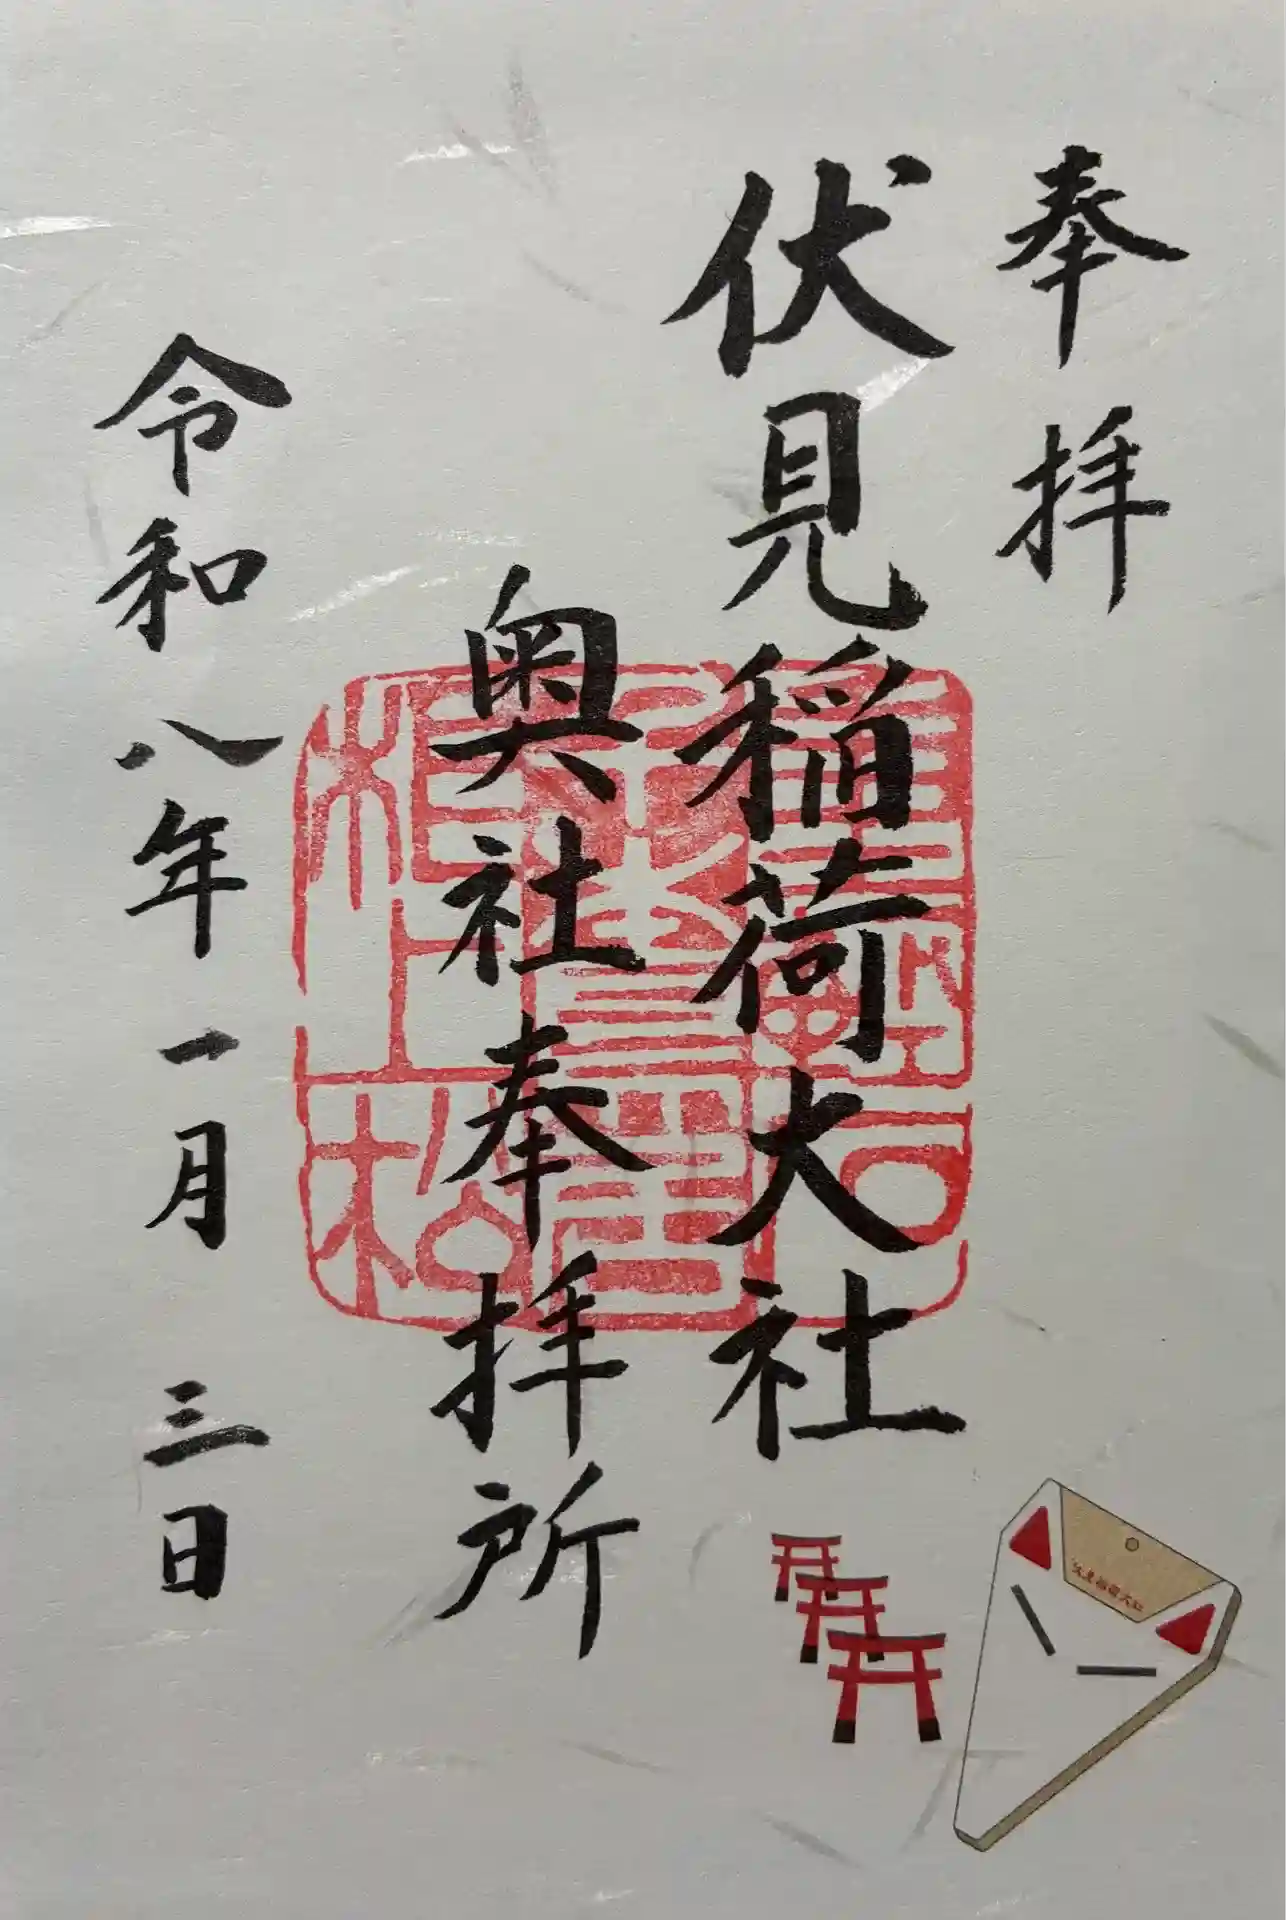 奉拝
伏見稲荷大社
奥社奉拝所
令和八年一月三日
伏見稲荷大社